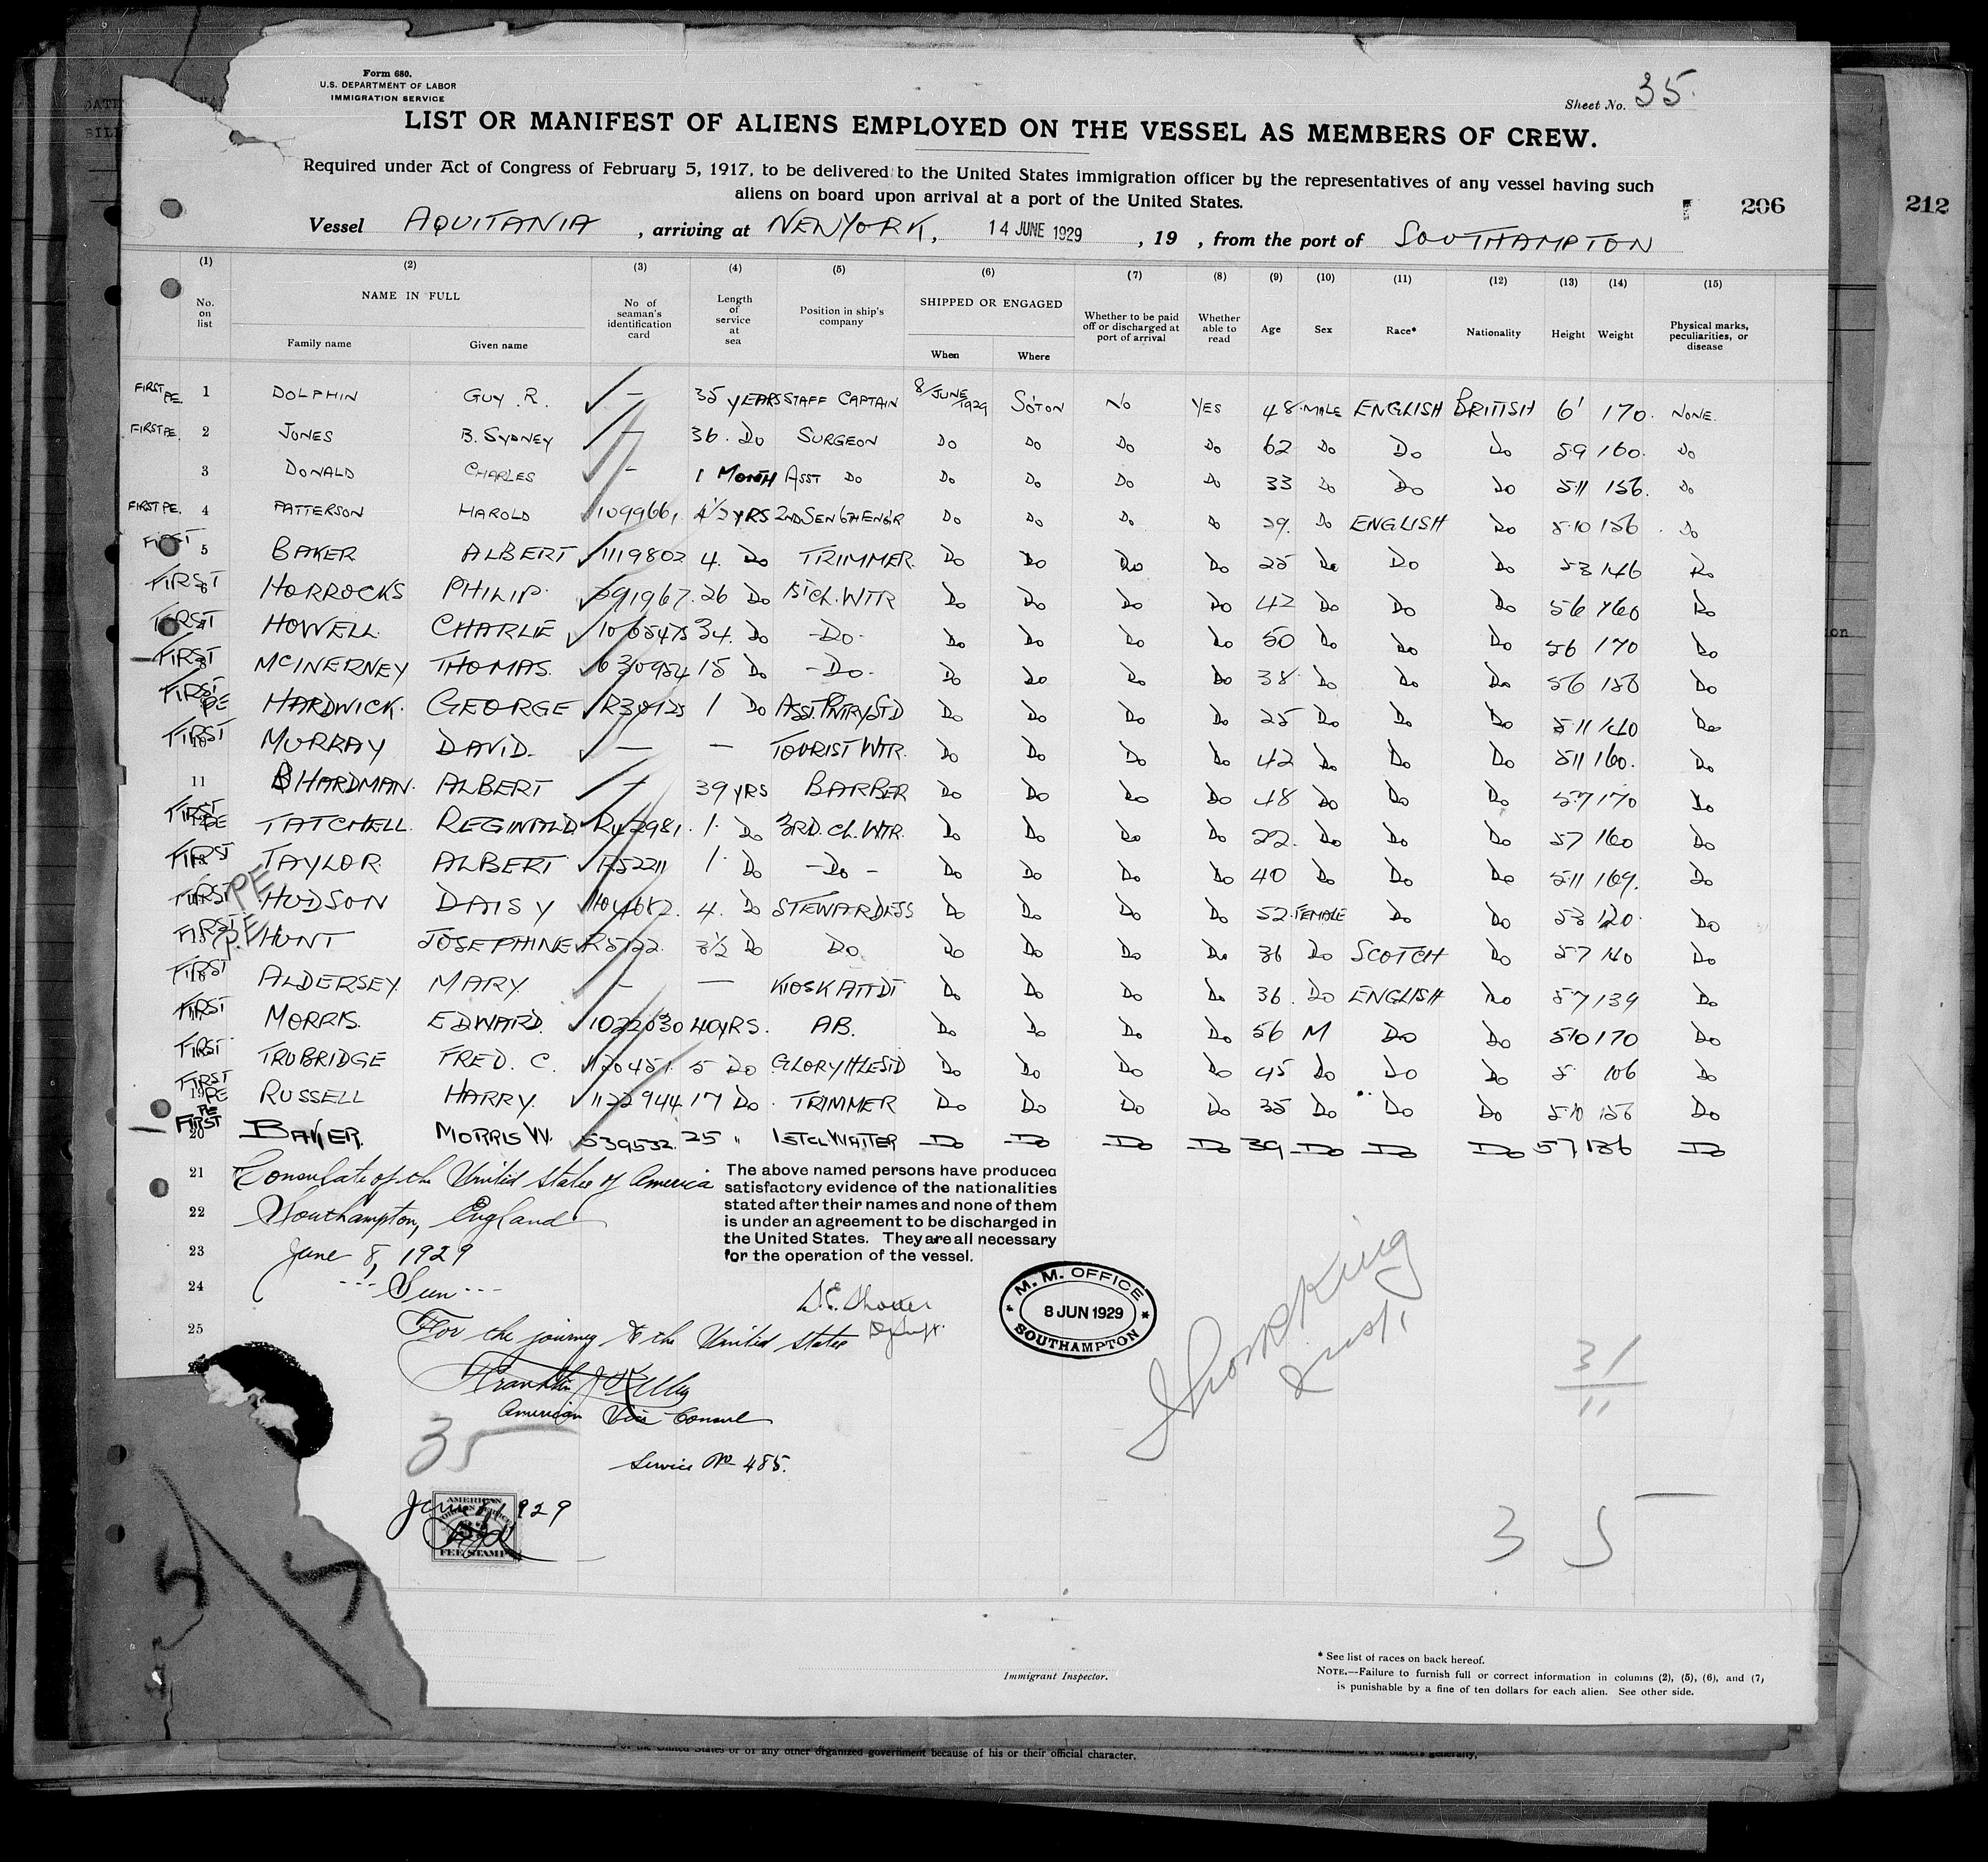 Form 680.
U.S. DEPARTMENT OF LABOR
IMMIGRATION SERVICE
Sheet No. 35
LIST OR MANIFEST OF ALIENS EMPLOYED ON THE VESSEL AS MEMBERS OF CREW.
Required under Act of Congress of February 5, 1917, to be delivered to the United States immigration officer by the representatives of any vessel having such
aliens on board upon arrival at a port of the United States.
206
212
Vessel AQUITANIA, arriving at NEW YORK, 14 JUNE 1929, 19 , from the port of SOUTHAMPTON
(1) (2) (3) (4) (5) (6) (7) (8) (9) (10) (11) (12) (13) (14) (15)
No. on list NAME IN FULL Family name Given name No of seaman's identification card Length of service at sea Position in ship's company SHIPPED OR ENGAGED When Where Whether to be paid off or discharged at port of arrival Whether able to read Age Sex Race* Nationality Height Weight Physical marks, peculiarities, or disease
FIRST PE. 1 DOLPHIN GUY. R. — 35 YEARS STAFF CAPTAIN 8/JUNE/1929 SO'TON NO YES 48 MALE ENGLISH BRITISH 6' 170. NONE.
FIRST PE. 2 JONES B. SYDNEY — 36. Do SURGEON Do Do Do Do 62 Do Do Do 5.9 160. Do
3 DONALD CHARLES — 1 MONTH ASST Do Do Do Do Do 33 Do Do Do 5.11 156. Do
FIRST PE. 4 PATTERSON HAROLD 1099661 4½ YRS 2ND SEN 6TH ENG'R Do Do Do Do 29. Do ENGLISH Do 5.10 156 Do
FIRST 5 BAKER ALBERT 1119802 4. Do TRIMMER. Do Do Do Do 25 Do Do Do 53 146 Do
FIRST 6 HORROCKS PHILIP. 591967. 26 Do 1ST CL. WTR Do Do Do Do 42 Do Do Do 56 160 Do
FIRST HOWELL CHARLIE 34. Do -Do- Do Do Do Do 50 Do Do Do 56 170 Do
FIRST 8 MCINERNEY THOMAS. 630954 15 Do -Do- Do Do Do Do 38 Do Do Do 56 156 Do
FIRST PE HARDWICK. GEORGE R30125 1 Do ASST. PNTRY STD Do Do Do Do 25 Do Do Do 5 11 140 Do
FIRST 10 MURRAY DAVID. — — TOURIST WTR. Do Do Do Do 42 Do Do Do 511 160. Do
11 HARDMAN. ALBERT — 39 YRS BARBER Do Do Do Do 48 Do Do Do 5.7 170 Do
FIRST PE TATCHELL. REGINALD R42981. 1. Do 3RD. CL. WTR. Do Do Do Do 22. Do Do Do 57 160 Do
FIRST TAYLOR ALBERT R52211 1. Do -Do- Do Do Do Do 40 Do Do Do 5.11 169. Do
FIRST PE HUDSON DAISY 4. Do STEWARDESS Do Do Do Do 52. FEMALE Do Do 53 120. Do
FIRST P.E. HUNT JOSEPHINE R5122. 3½ Do Do Do Do Do Do 36 Do SCOTCH Do 57 140 Do
FIRST ALDERSEY MARY. — — KIOSK ATTDT Do Do Do Do 36. Do ENGLISH Do 5.7 139 Do
FIRST MORRIS. EDWARD. 1022030 40 YRS. AB. Do Do Do Do 56 M Do Do 510 170 Do
FIRST TRUBRIDGE FRED. C. 1120451. 5 Do GLORY HLE STD Do Do Do Do 45 Do Do Do 5 106 Do
FIRST PE 19 RUSSELL HARRY. 1122944 17 Do. TRIMMER Do Do Do Do 35 Do Do Do 5.10 156 Do
PE FIRST 20 BAKER. MORRIS W. 539532. 25 " 1ST CL WAITER Do Do Do Do 39 Do Do Do 57 136 Do
21 Consulate of the United States of America
22 Southampton, England
23 June 8, 1929
24 --- Seen ---
25 For the journey to the United States
The above named persons have produced
satisfactory evidence of the nationalities
stated after their names and none of them
is under an agreement to be discharged in
the United States. They are all necessary
for the operation of the vessel.
M. M. OFFICE
8 JUN 1929
SOUTHAMPTON
American Vice Consul
35
Service No 485.
June 8 1929
AMERICAN
FEE STAMP
31
11
3 5
Immigrant Inspector.
* See list of races on back hereof.
NOTE.—Failure to furnish full or correct information in columns (2), (5), (6), and (7),
is punishable by a fine of ten dollars for each alien. See other side.
of the United States or of any other organized government because of his or their official character.